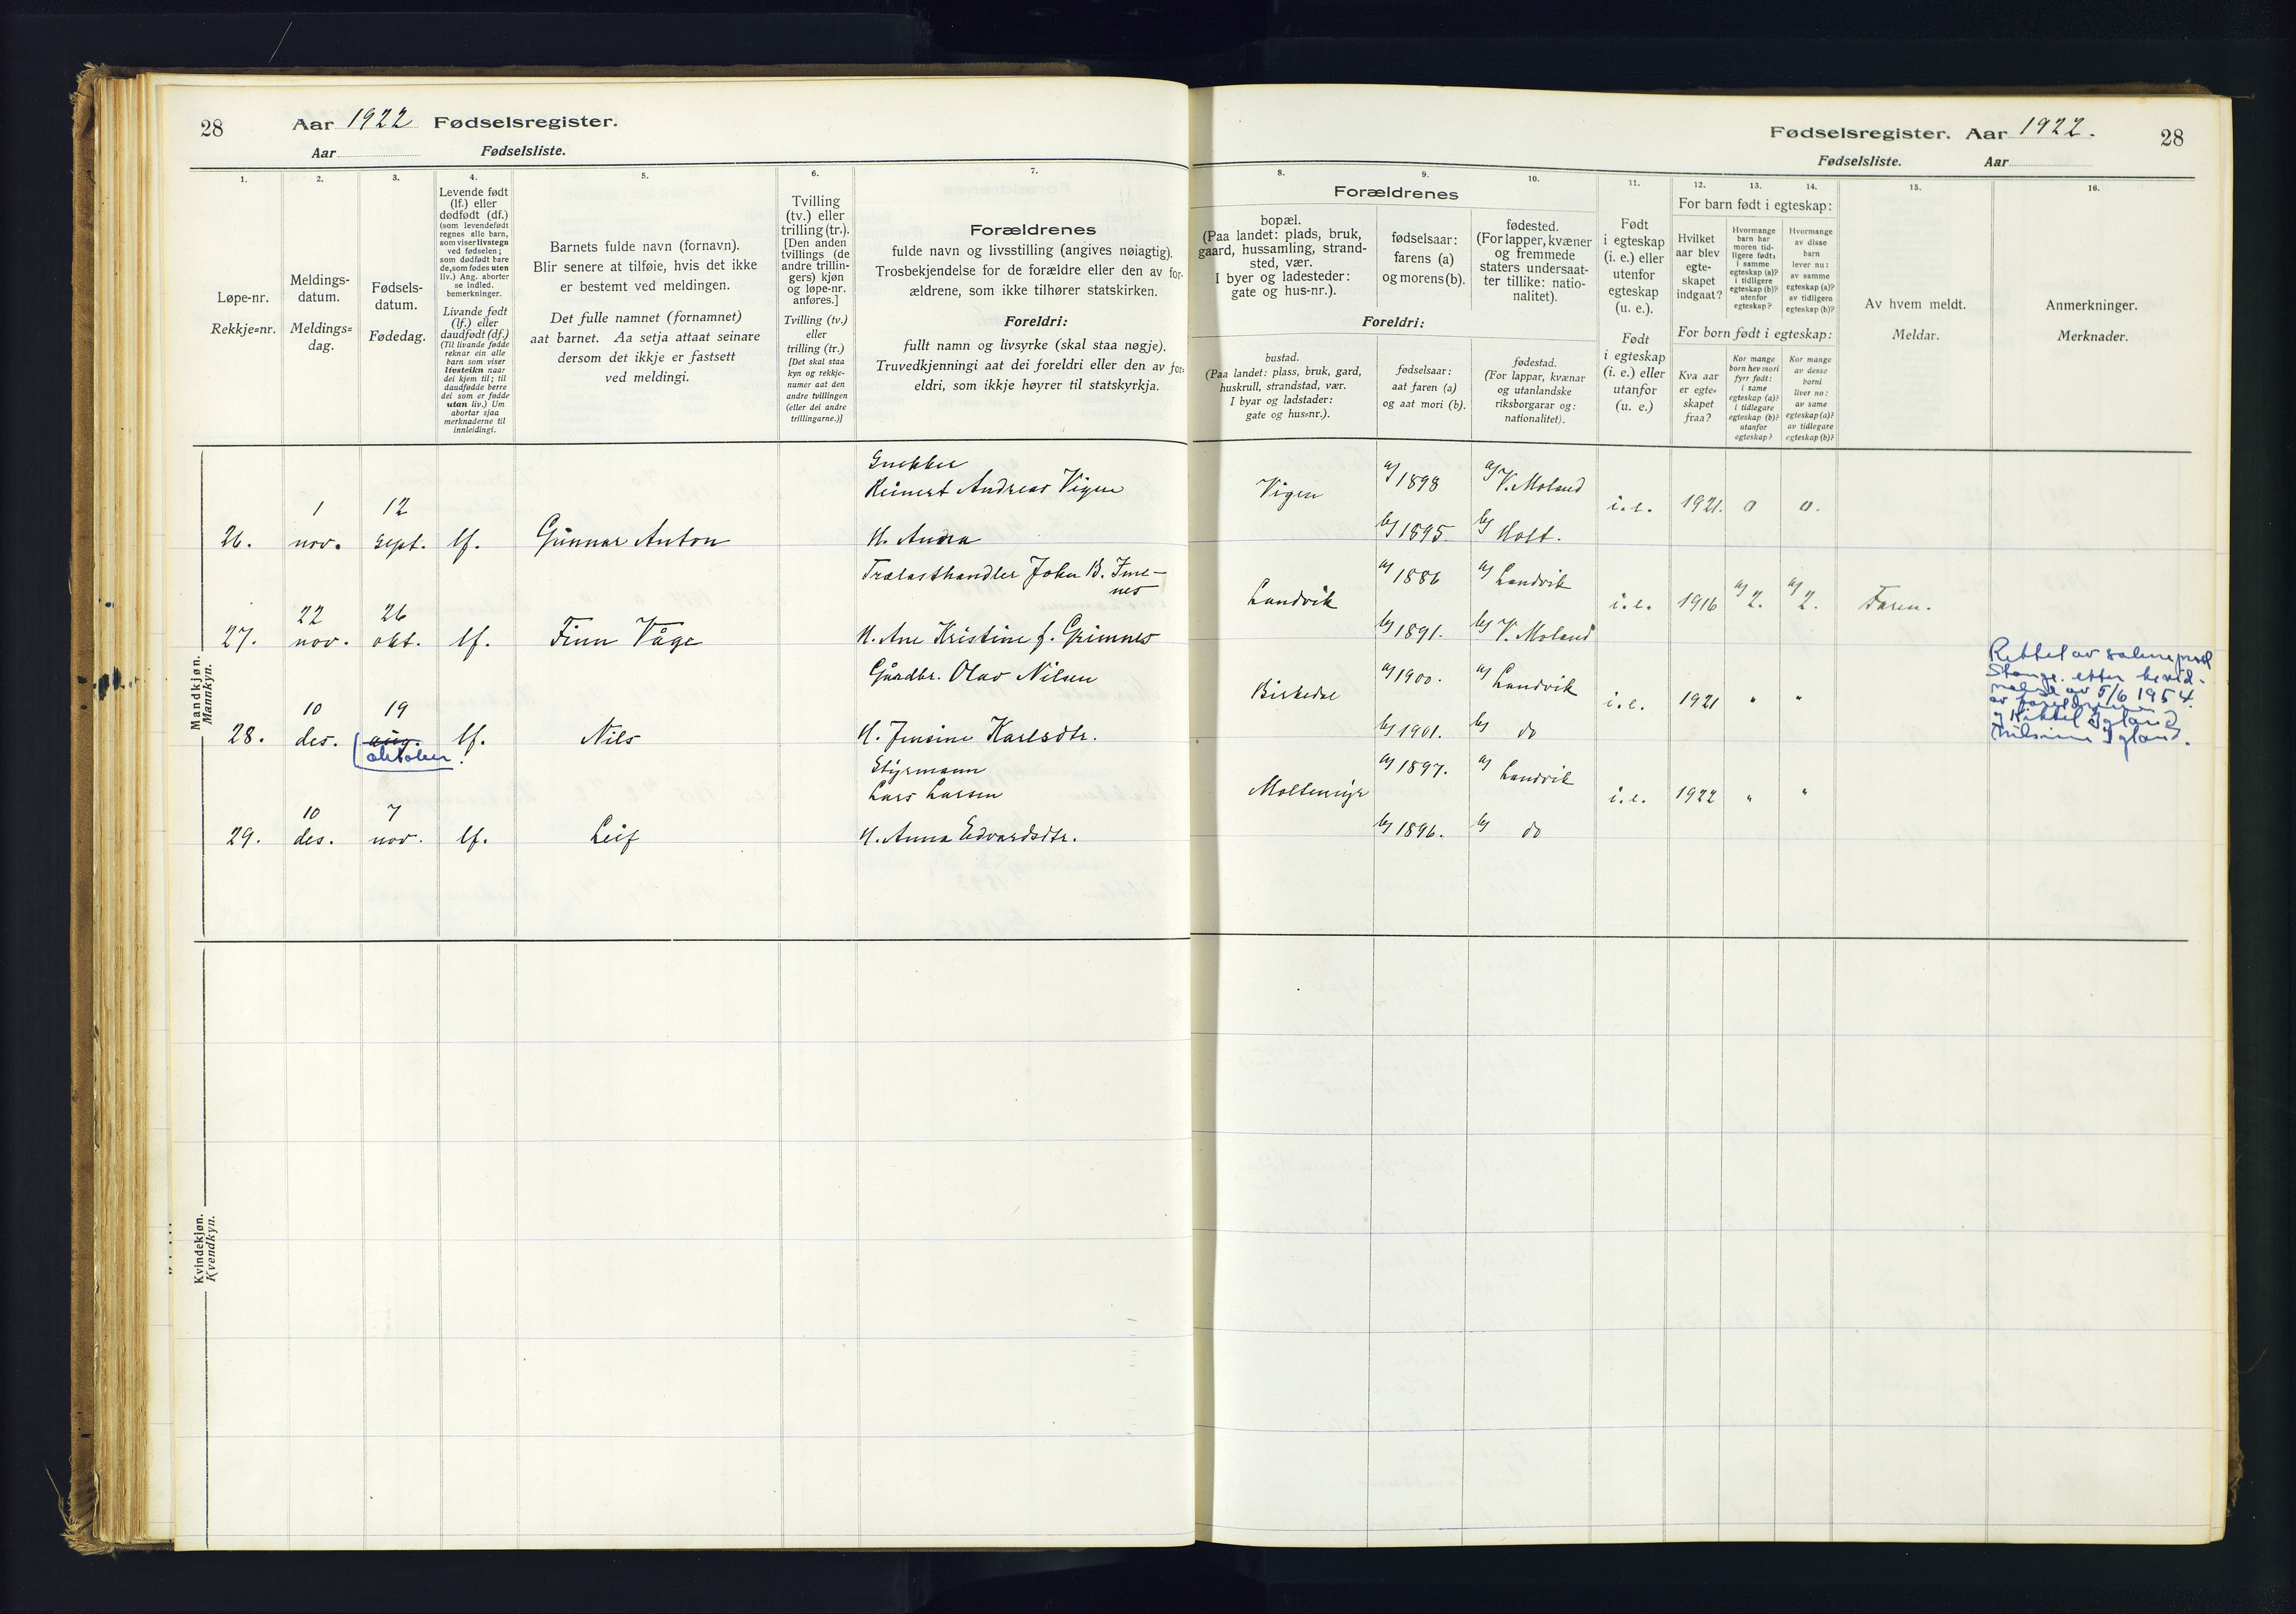 28
Aar 1922 Fødselsregister.
Aar Fødselsliste.
Fødselsregister. Aar 1922.
28
Fødselsliste. Aar
1.
Løpe-nr.
Rekkje=nr.
2.
Meldings-
datum.
Meldings=
dag.
3.
Fødsels-
datum.
Fødedag.
4.
Levende født
(lf.) eller
dødfødt (df.)
(som levendefødt
regnes alle barn,
som viser livstegn
ved fødselen;
som dødfødt bare
de, som fødes uten
liv.) Ang. aborter
se indled.
bemerkninger.
Livande født
(lf.) eller
daudfødt (df.)
(Til livande fødde
reknar ein alle
barn som viser
livsteikn naar
dei kjem til; til
daudfødde berre
dei som er fødde
utan liv.) Um
abortar sjaa
merknaderne til
innleidingi.
5.
Barnets fulde navn (fornavn).
Blir senere at tilføie, hvis det ikke
er bestemt ved meldingen.
Det fulle namnet (fornamnet)
aat barnet. Aa setja attaat seinare
dersom det ikkje er fastsett
ved meldingi.
6.
Tvilling
(tv.) eller
trilling (tr.).
[Den anden
tvillings (de
andre trillin-
gers) kjøn
og løpe-nr.
anføres.]
Tvilling (tv.)
eller
trilling (tr.)
[Det skal staa
kyn og rekkje-
numer aat den
andre tvillingen
(eller dei andre
trillingarne.)]
7.
Forældrenes
fulde navn og livsstilling (angives nøiagtig).
Trosbekjendelse for de forældre eller den av for-
ældrene, som ikke tilhører statskirken.
Foreldri:
fullt namn og livsyrke (skal staa nøgje).
Truvedkjenningi aat dei foreldri eller den av for-
eldri, som ikkje høyrer til statskyrkja.
Forældrenes
8.
bopæl.
(Paa landet: plads, bruk,
gaard, hussamling, strand-
sted, vær.
I byer og ladesteder:
gate og hus-nr.).
9.
fødselsaar:
farens (a)
og morens (b).
10.
fødested.
(For lapper, kvæner
og fremmede
staters undersaat-
ter tillike: natio-
nalitet).
Foreldri:
bustad.
(Paa landet: plass, bruk, gard,
huskrull, strandstad, vær.
I byar og ladstader:
gate og hus=nr.).
fødselsaar:
aat faren (a)
og aat mori (b).
fødestad.
(For lappar, kvænar
og utanlandske
riksborgarar og:
nationalitet).
11.
Født
i egteskap
(i. e.) eller
utenfor
egteskap
(u. e.).
Født
i egteskap
(i. e.) eller
utanfor
(u. e.)
12. 13. 14.
For barn født i egteskap:
Hvilket
aar blev
egte-
skapet
indgaat?
Hvormange
barn har
moren tid-
ligere født:
i samme
egteskap (a)?
i tidligere
egteskap (b)?
utenfor
egteskap?
Hvormange
av disse
barn
lever nu:
av samme
egteskap (a)?
av tidligere
egteskap (b)?
For born født i egteskap:
Kva aar
er egte-
skapet
fraa?
Kor mange
born hev mori
fyrr født:
i same
egteskap (a)?
i tidlegare
egteskap (b)?
utanfor
egteskap?
Kor mange
av desse
borni
liver no:
av same
egteskap (a)?
av tidlegare
egteskap (b)?
15.
Av hvem meldt.
Meldar.
16.
Anmerkninger.
Merknader.
Mandkjøn.
Mannkyn.
Snekker
Reinert Andreas Vigen
Vigen a) 1898 a) V. Moland
1 12
i.e. 1921. 0 0.
26. nov. sept. lf. Gunnar Anton H. Anna
b) 1895. b) Holt.
Trælasthandler John B. Ime-
nes
a) 1886 a) Landvik
Landvik i.e. 1916 a) 2. a) 2. Faren.
22 26
27. nov. okt. lf. Finn Våge H. Ane Kristine f. Grimnes
b) 1891. b) V. Moland
Gårdbr. Olav Nilsen
a) 1900. a) Landvik
Birkedal i.e. 1921 " "
10 19
28. des. aug. lf. Nils H. Jensine Karlsdtr.
oktober.
b) 1901. b) do
Rettet av sokneprest
Stange etter bevid-
nelse av 5/6 1954.
av foreldrene
og Kittel Igland
Nilsine Igland.
Styrmann
Lars Larsen
a) 1897. a) Landvik
Moltemyr i.e. 1922 " "
10 7
29. des. nov. lf. Leif H. Anna Edvardsdtr.
b) 1896. b) do
Kvindekjøn.
Kvendkyn.